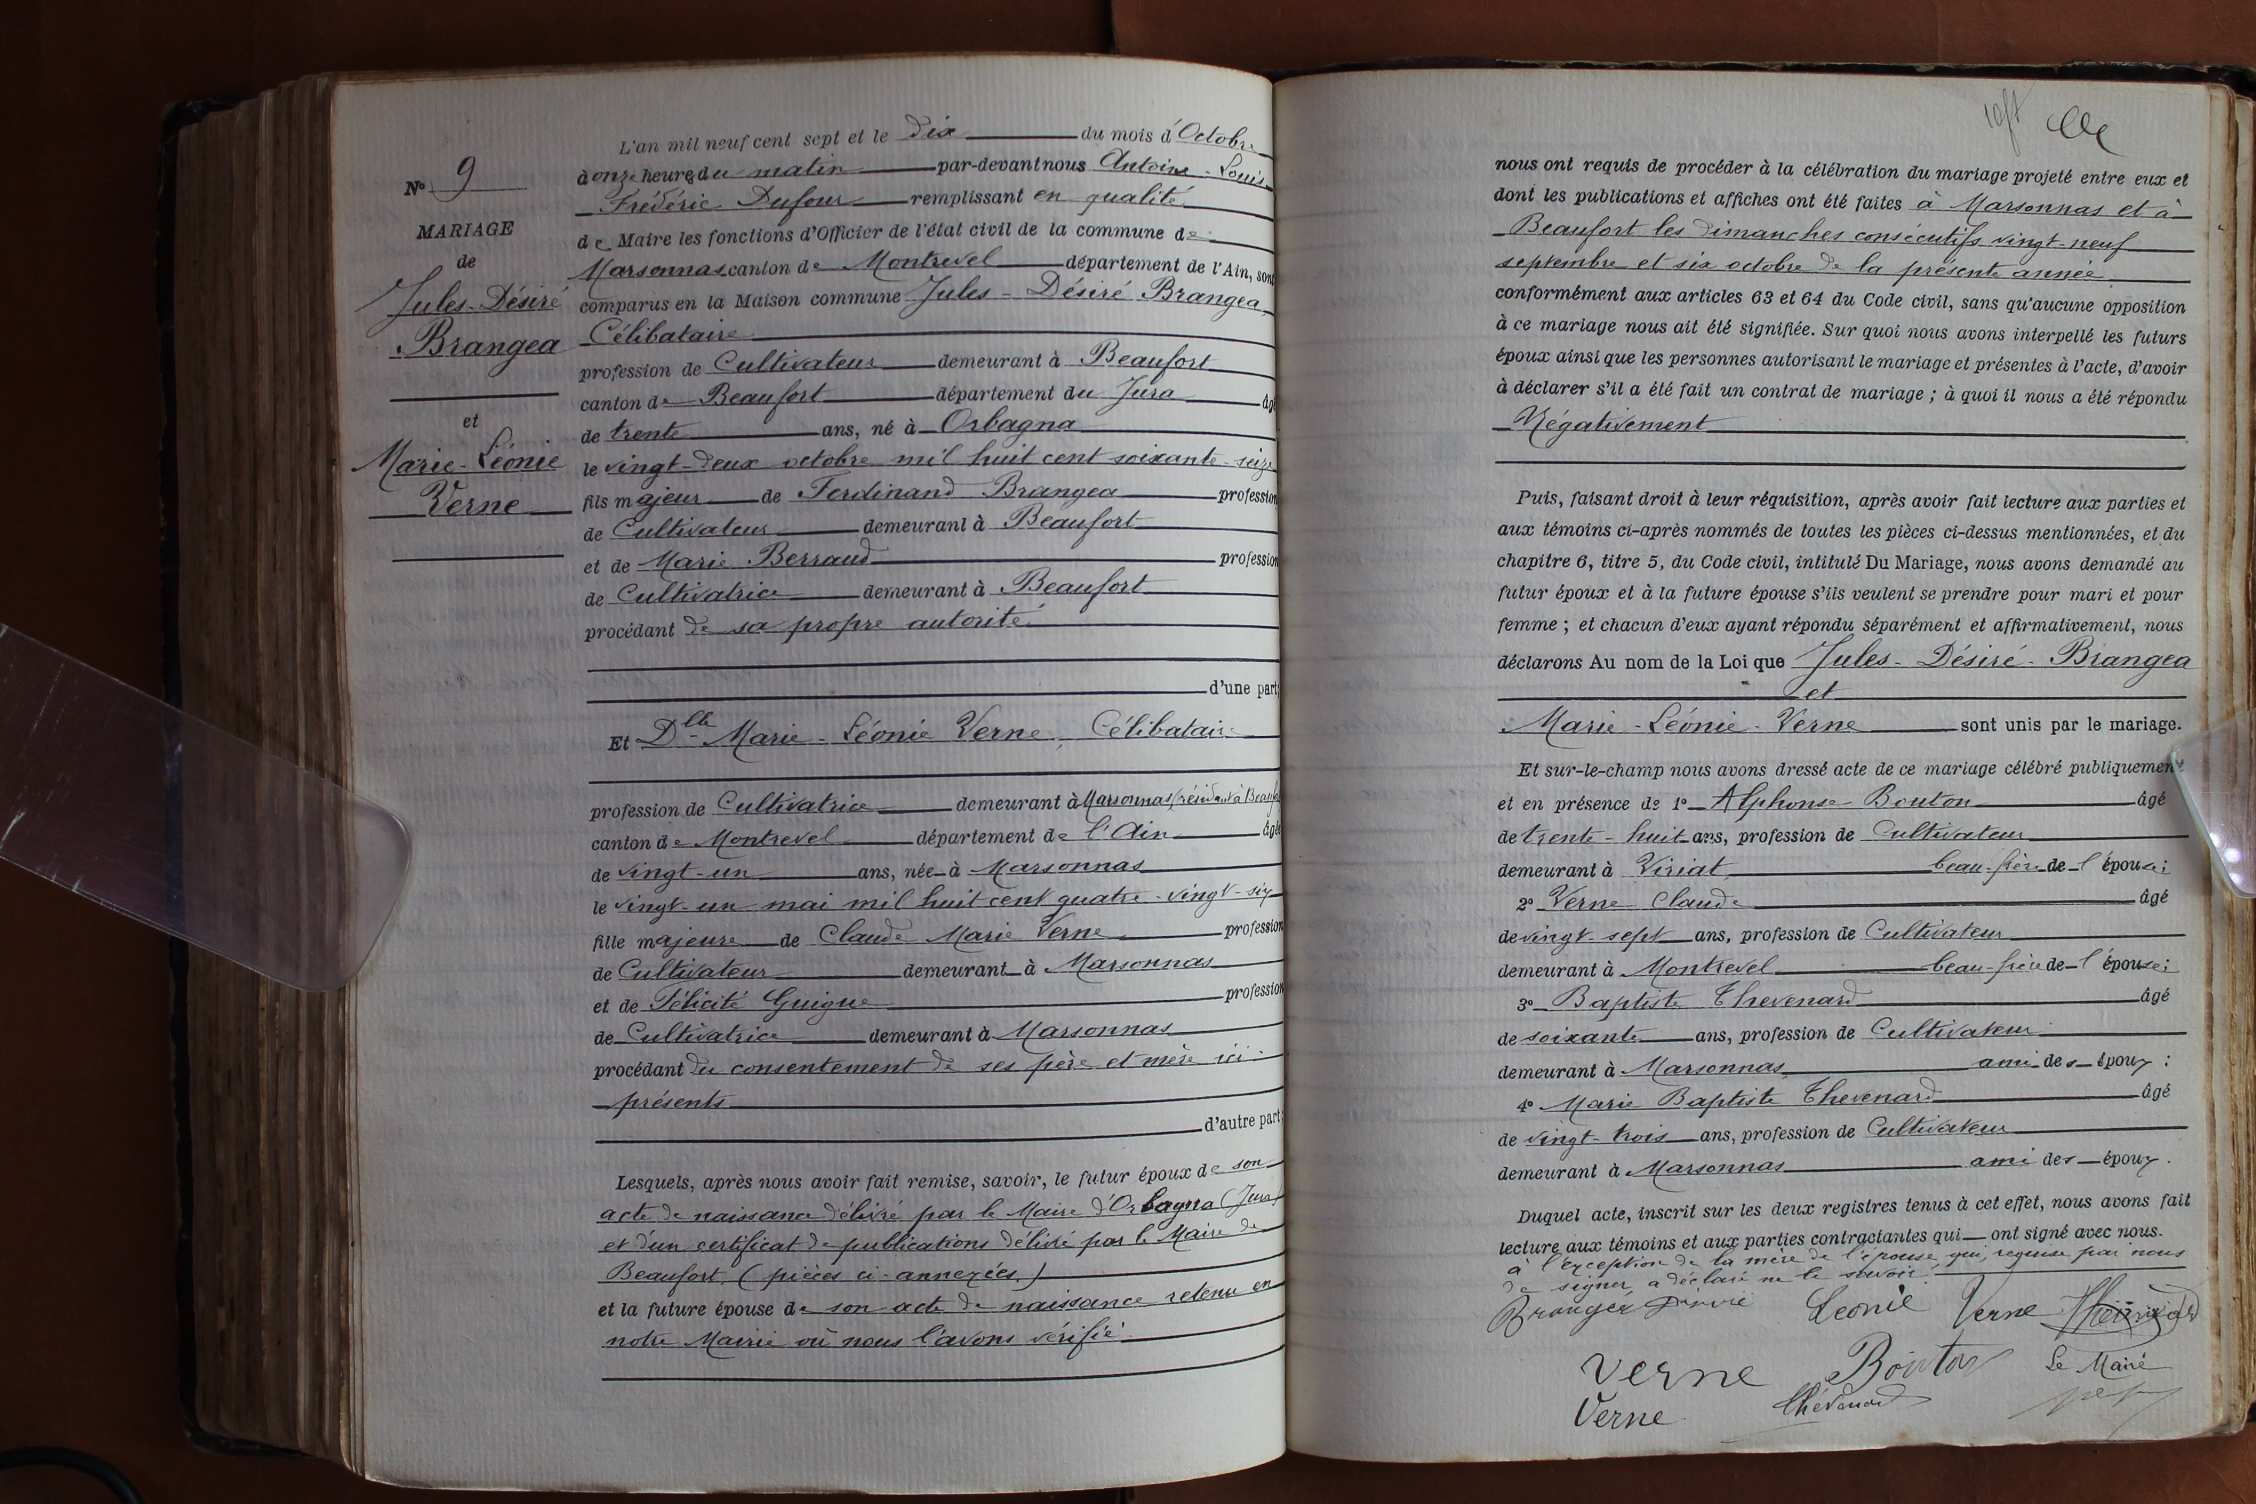 L'an mil neuf cent sept et le Dix du mois d'Octobre
à onze heures du matin par-devant nous Antoine-Louis
Frédéric Dufour remplissant en qualité
de Maire les fonctions d'Officier de l'état civil de la commune de
Marsonnas, canton de Montrevel département de l'Ain, sont
comparus en la Maison commune Jules-Désiré Brangea,
Célibataire
profession de Cultivateur demeurant à Beaufort
canton de Beaufort département du Jura âgé
de trente ans, né à Orbagna
le vingt-deux octobre mil huit cent soixante-seize
fils majeur de Ferdinand Brangea profession
de Cultivateur demeurant à Beaufort
et de Marie Berraud profession
de Cultivatrice demeurant à Beaufort
procédant de sa propre autorité
d'une part;
Et Dlle Marie-Léonie Verne, Célibataire
profession de Cultivatrice demeurant à Marsonnas (résidant à Beaufort
canton de Montrevel département de l'Ain âgée
de vingt-un ans, née à Marsonnas
le vingt-un mai mil huit cent quatre-vingt-six
fille majeure de Claude Marie Verne profession
de Cultivateur demeurant à Marsonnas
et de Félicité Guigue profession
de Cultivatrice demeurant à Marsonnas
procédant du consentement de ses père et mère ici
présents
d'autre part;
Lesquels, après nous avoir fait remise, savoir, le futur époux de son
acte de naissance délivré par le Maire d'Orbagna (Jura)
et d'un certificat de publications délivré par le Maire de
Beaufort. (pièces ci-annexées.)
et la future épouse de son acte de naissance retenu en
notre Mairie où nous l'avons vérifié
No 9
MARIAGE
de
Jules-Désiré
Brangea
et
Marie-Léonie
Verne
nous ont requis de procéder à la célébration du mariage projeté entre eux et
dont les publications et affiches ont été faites à Marsonnas et à
Beaufort les dimanches consécutifs vingt-neuf
septembre et six octobre de la présente année
conformément aux articles 63 et 64 du Code civil, sans qu'aucune opposition
à ce mariage nous ait été signifiée. Sur quoi nous avons interpellé les futurs
époux ainsi que les personnes autorisant le mariage et présentes à l'acte, d'avoir
à déclarer s'il a été fait un contrat de mariage ; à quoi il nous a été répondu
Négativement
Puis, faisant droit à leur réquisition, après avoir fait lecture aux parties et
aux témoins ci-après nommés de toutes les pièces ci-dessus mentionnées, et du
chapitre 6, titre 5, du Code civil, intitulé Du Mariage, nous avons demandé au
futur époux et à la future épouse s'ils veulent se prendre pour mari et pour
femme ; et chacun d'eux ayant répondu séparément et affirmativement, nous
déclarons Au nom de la Loi que Jules-Désiré-Brangea
et
Marie-Léonie-Verne sont unis par le mariage.
Et sur-le-champ nous avons dressé acte de ce mariage célébré publiquement
et en présence de 1° Alphonse Bouton âgé
de trente-huit ans, profession de Cultivateur
demeurant à Viriat, beau-frère de l'épouse;
2° Verne Claude âgé
de vingt-sept ans, profession de Cultivateur
demeurant à Montrevel beau-frère de l'épouse;
3° Baptiste Thevenard âgé
de soixante ans, profession de Cultivateur
demeurant à Marsonnas ami des époux ;
4° Marie Baptiste Thevenard âgé
de vingt-trois ans, profession de Cultivateur
demeurant à Marsonnas ami des époux.
Duquel acte, inscrit sur les deux registres tenus à cet effet, nous avons fait
lecture aux témoins et aux parties contractantes qui ont signé avec nous.
à l'exception de la mère de l'épouse, qui, requise par nous
de signer, a déclaré ne le savoir.
Leonie Verne
Verne Bouton Le Maire
Verne Thévenard